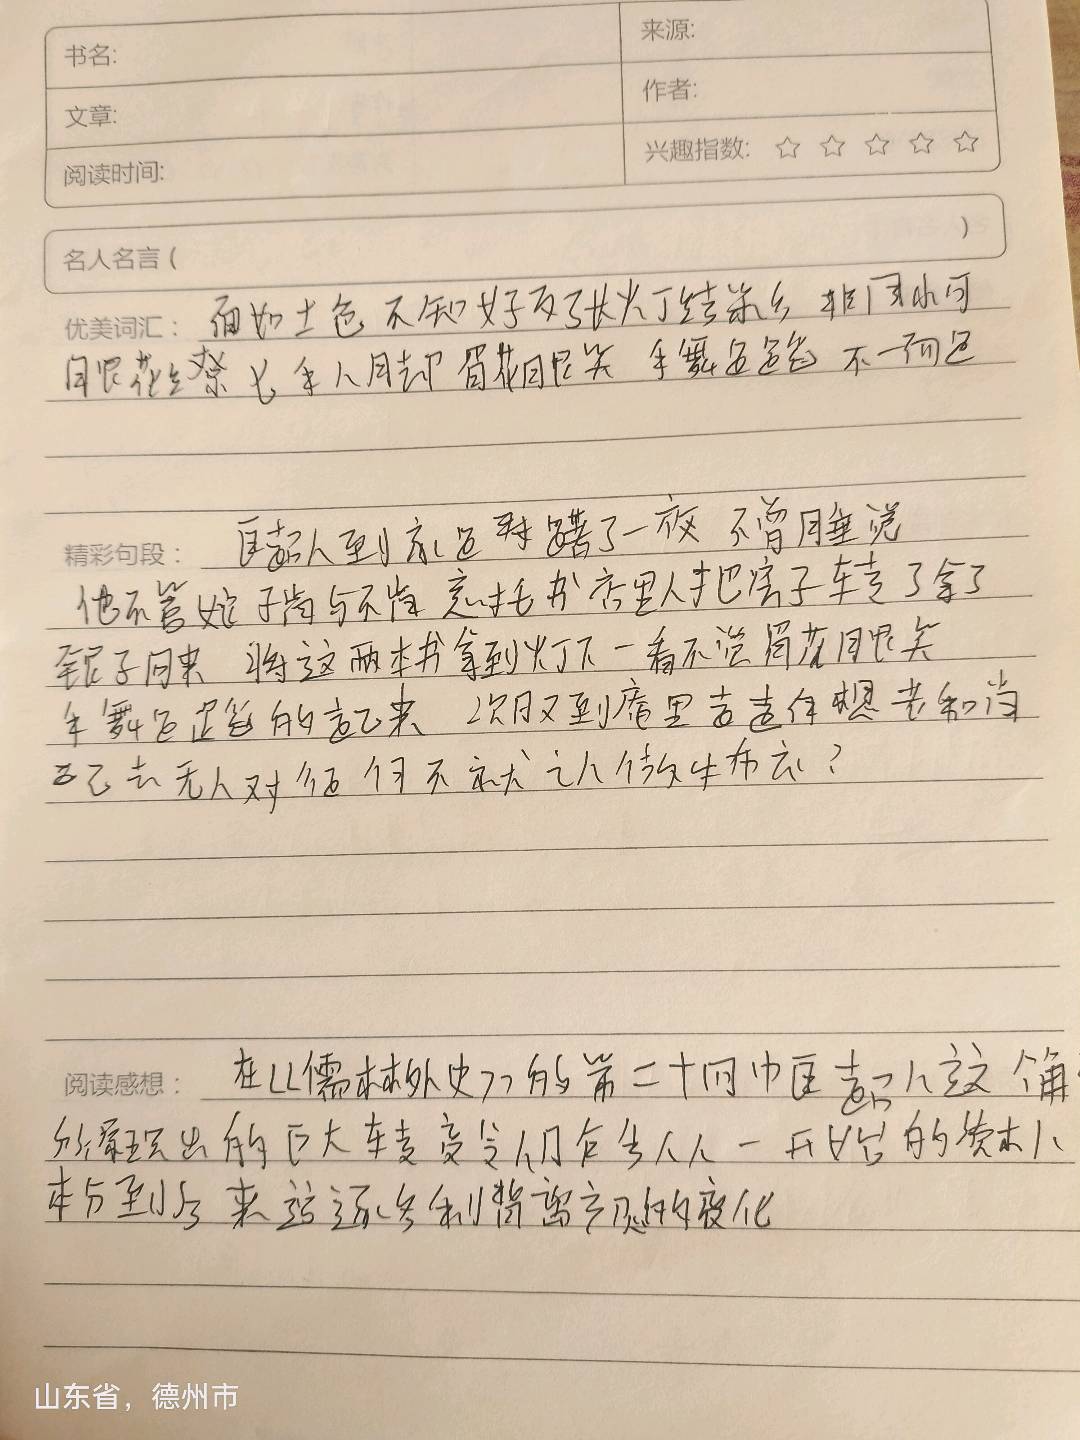 书名:
来源:
文章:
作者:
阅读时间:
兴趣指数: ☆ ☆ ☆ ☆ ☆
名人名言 ( )
优美词汇: 面如土色 不知好歹 张灯结彩 非同小可
眼花缭 七手八脚 眉花眼笑 手舞足蹈 不一而足
精彩句段: 匡超人到家 了一夜 不曾睡 说
他不管娘子肯与不肯 意托书店里人把房子转了拿了
银子回来 将这两本书拿到灯下一看不觉眉花眼笑
手舞足蹈的起来 次日又到庵里 去 想老和尚
已去无人对 何不就 人做生 ?
阅读感想: 在《儒林外史》的第二十 中匡超人这个角
所 现出的巨大转变 令人 一开始的 人
本分到后来 追逐名利 背离 的变化
山东省，德州市